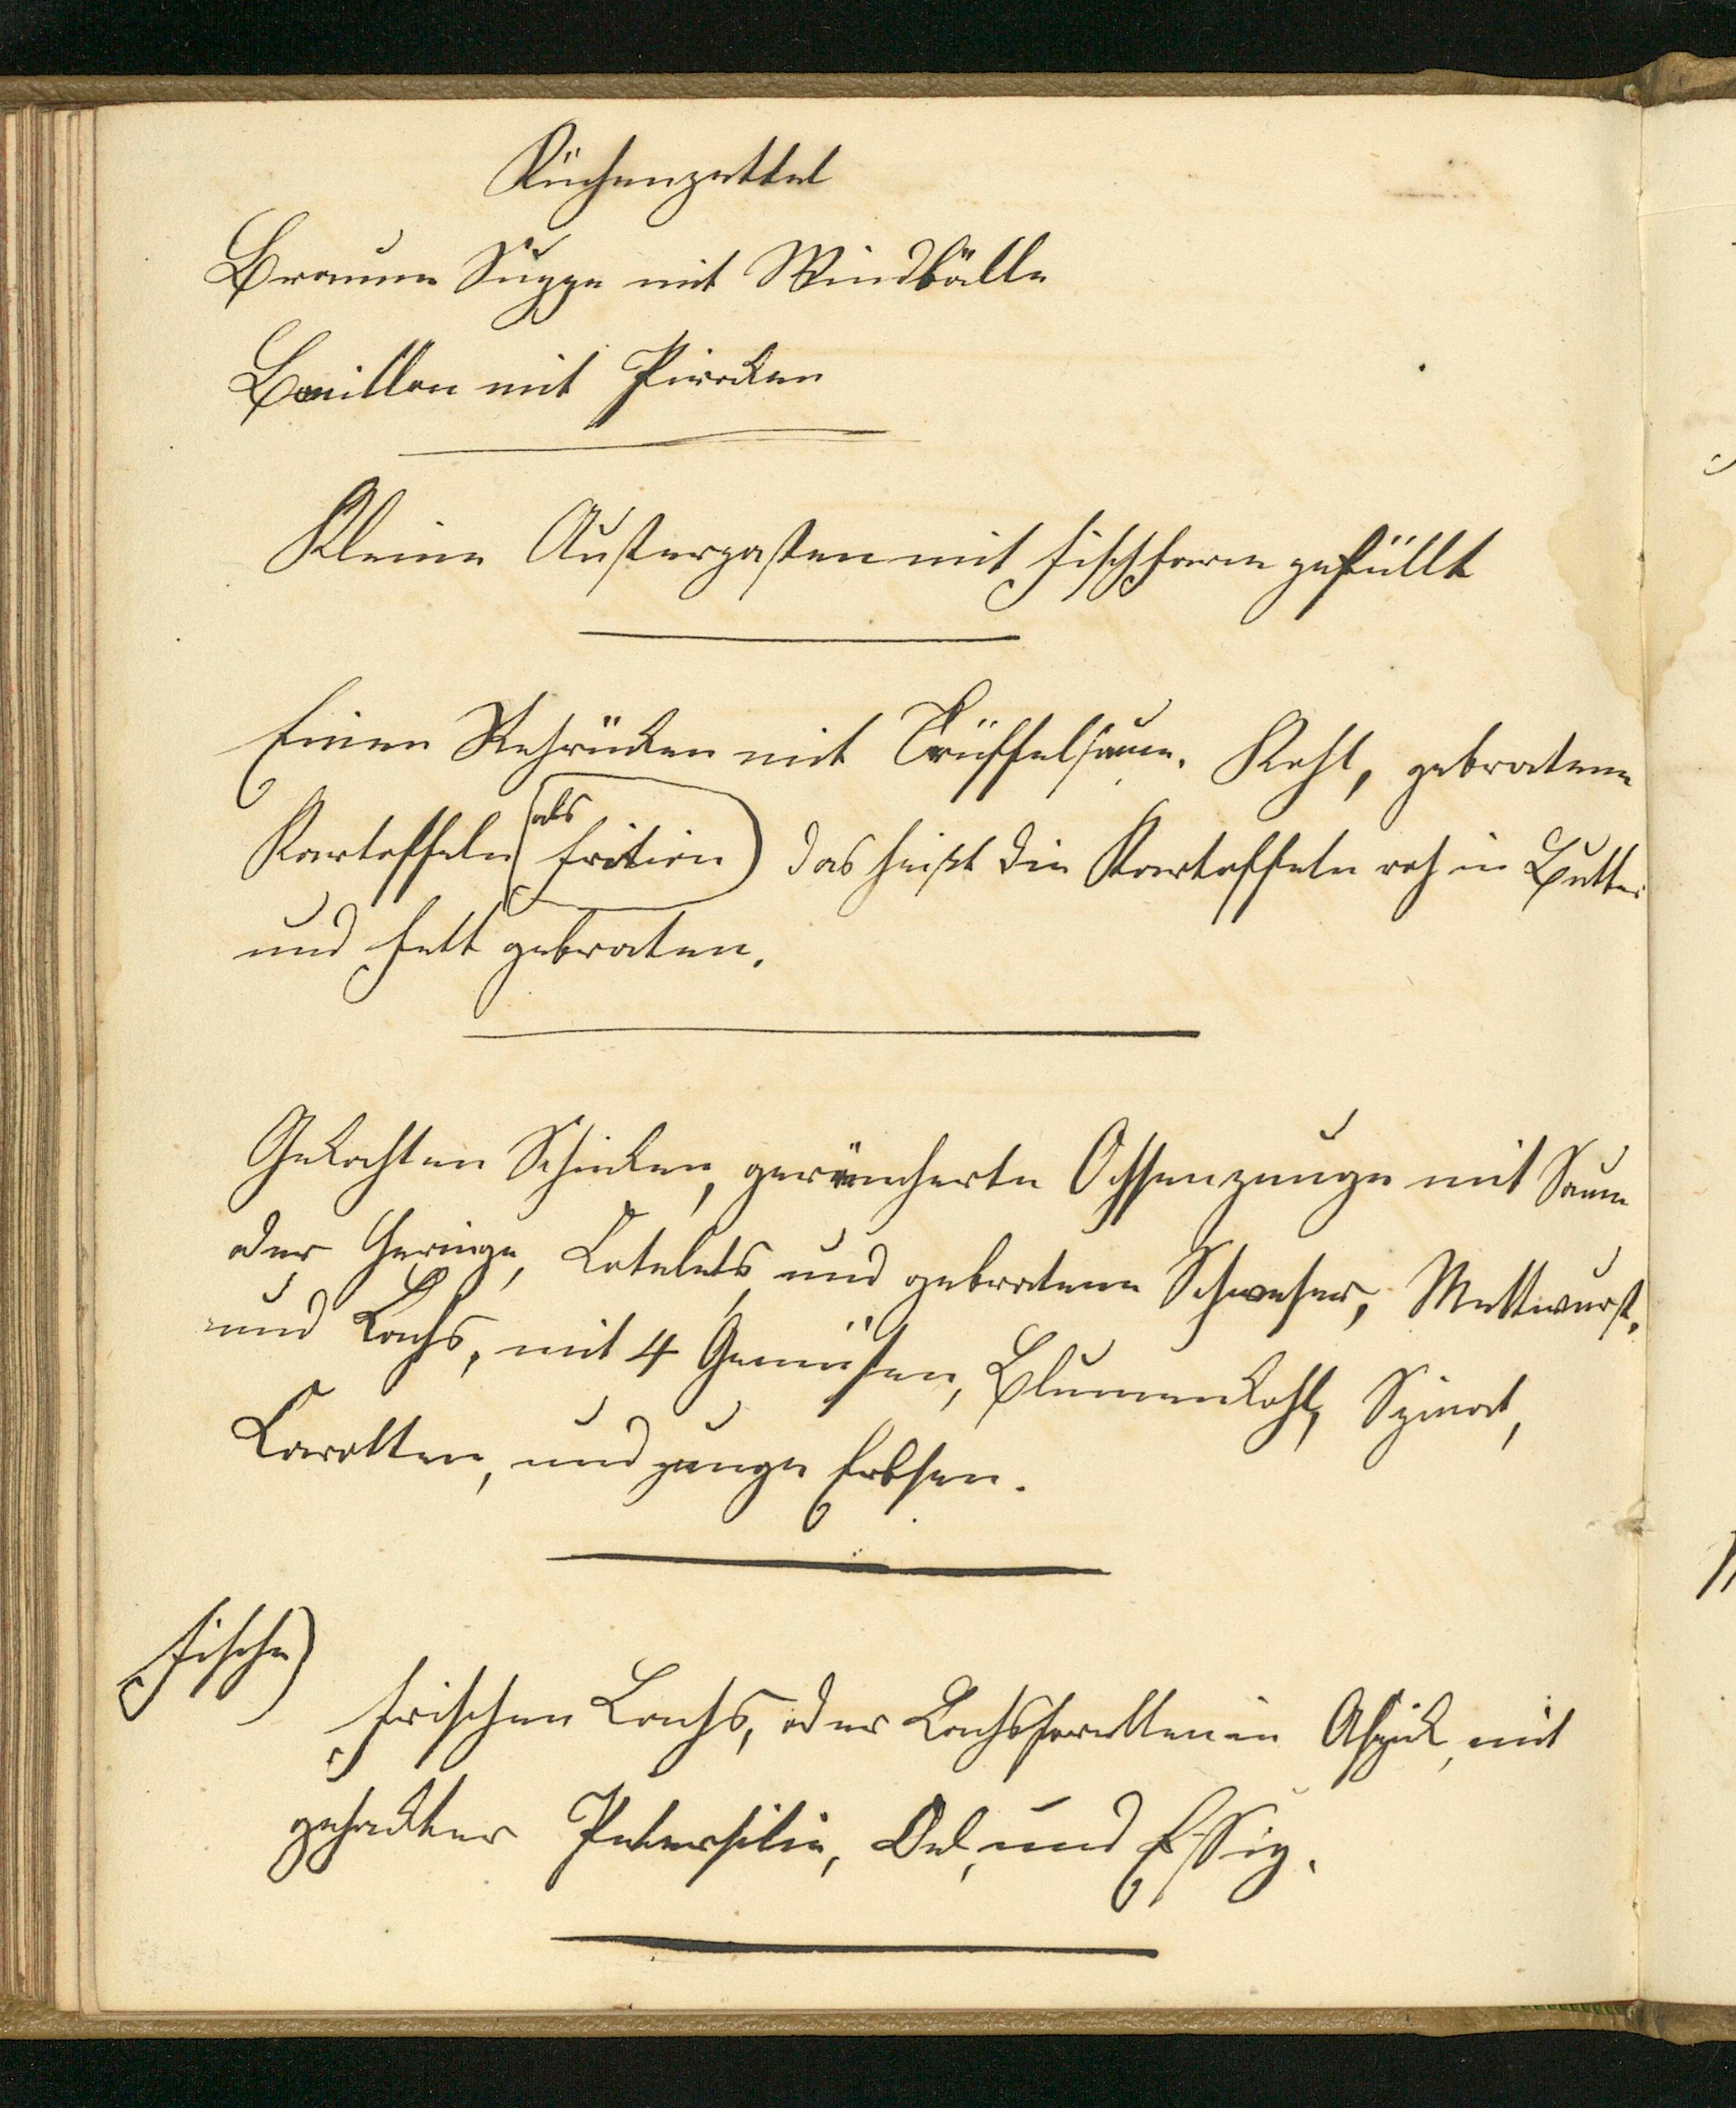 Küchenzettel
Braune Suppe mit Windbälle
Bouillon mit Pirocken
Kleine Austerpasteten mit Fischfarce gefüllt
Einen Rehrücken mit Trüffelsauce. Kohl, gebratene
Kartoffeln (als frition) das heißt die Kartoffeln roh in Butter
und Fett gebraten.
Gekochten Schinken, geräucherte Ochsenzunge mit Sauce
oder Heringe, Cotelets und gebratene Schweser, Mettwurst,
und Lachs, mit 4 Gemüsen, Blumenkohl, Spinat,
Carotten, und junge Erbsen.
Fische)
frischen Lachs, oder Lachsforellen in Aspick, mit
gehackter Petersilie, Oel, und Essig.